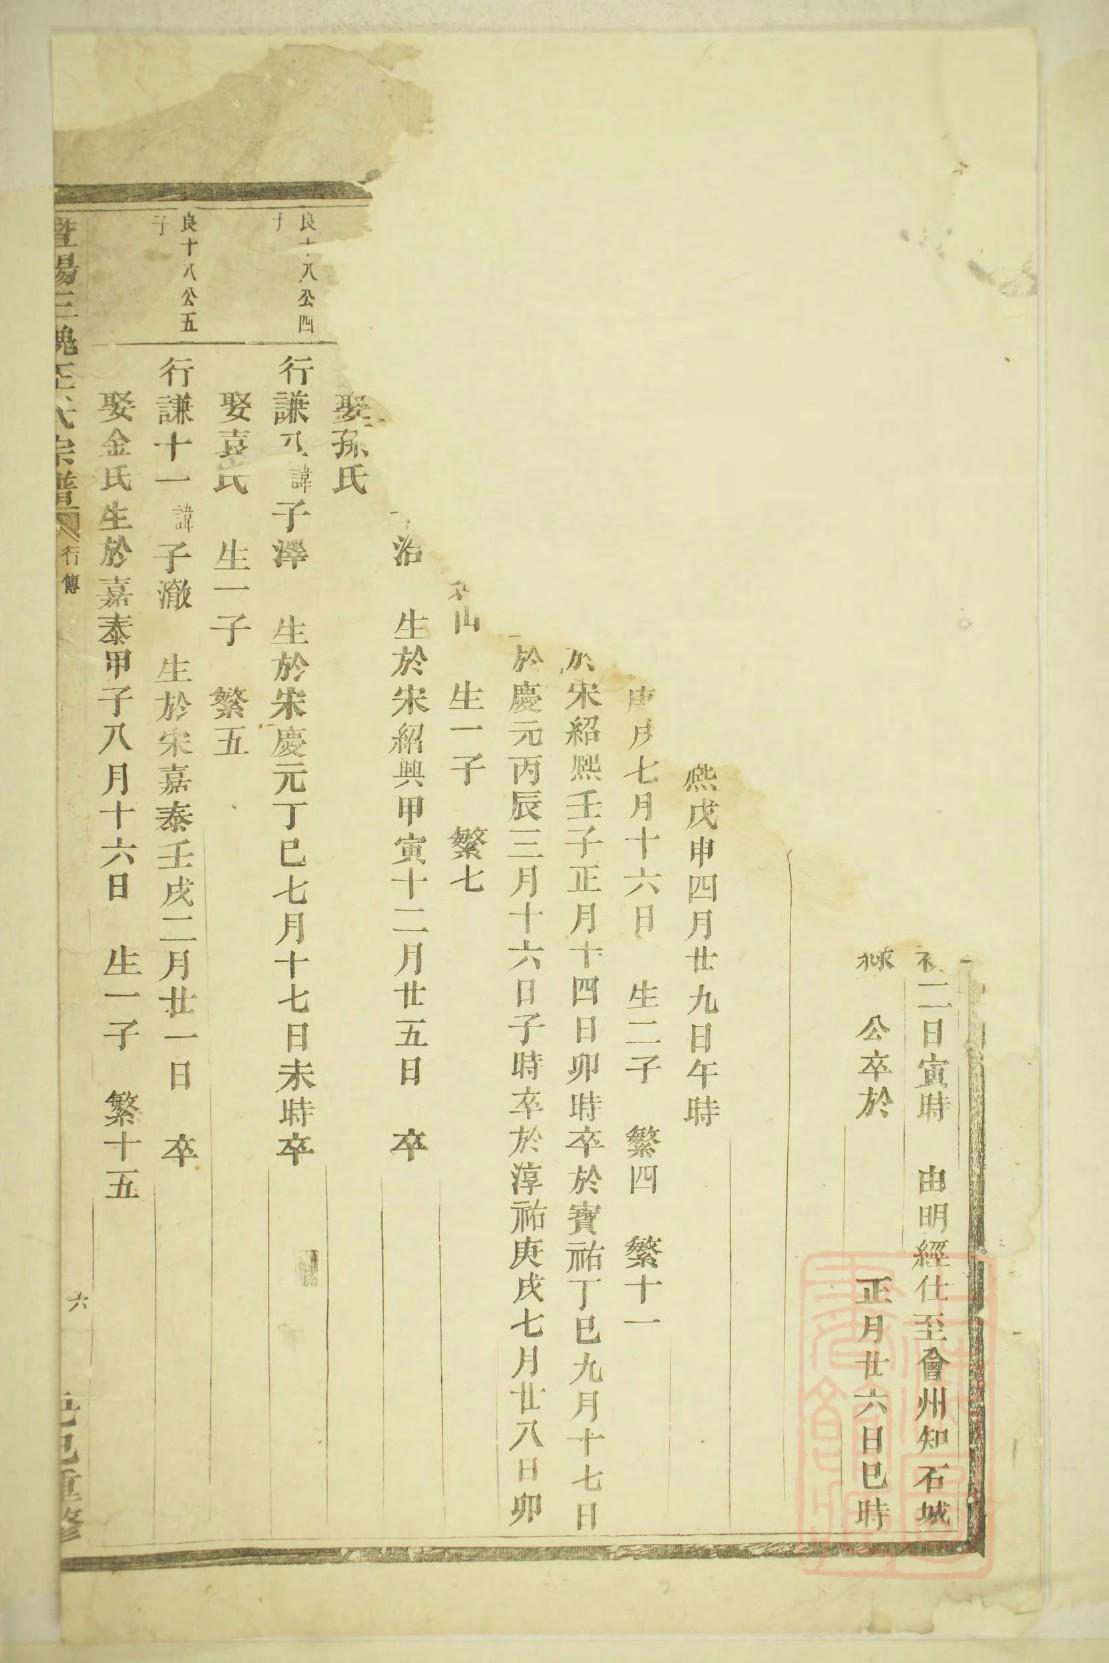 二日寅時 由明經仕至會州知石城
公卒於 正月廿六日巳時
熈戊申四月廿九日午時
庚戌七月十六日 生二子 繁四 繁十一
於宋紹熈壬子正月十四日卯時卒於寶祐丁巳九月十七日
於慶元丙辰三月十六日子時卒於淳祐庚戌七月廿八日卯
山 生一子 繁七
浩 生於宋紹興甲寅十二月廿五日 卒
娶孫氏
良十八公四
子
行謙 諱子澤 生於宋慶元丁巳七月十七日未時卒
娶袁氏 生一子 繁五
良十八公五
子
行謙十一 諱子澈 生於宋嘉泰壬戌二月廿一日 卒
娶金氏生於嘉泰甲子八月十六日 生一子 繁十五
暨陽三槐王氏宗譜 行傳 六 己巳重修